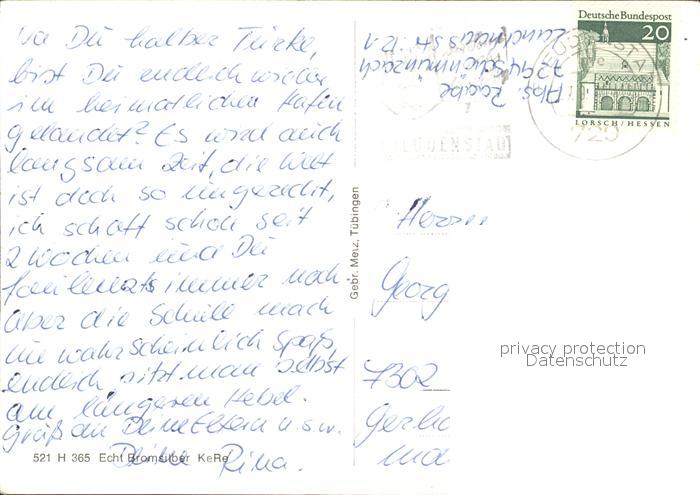 na Du halber Türke,
bist Du endlich wieder
im heimatlichen Hafen
gelandet? Es wird auch
langsam Zeit, die Welt
ist doch so ungerecht,
ich schaff schon seit
2 Wochen und Du
faulenzst immer noch
Aber die Schule mach
mir wahrscheinlich Spaß,
endlich sitzt man selbst
am längeren Hebel.
Grüß an Deine Eltern u.s.w.
Deine Rina.
521 H 365 Echt Bromsilber KeRe
Gebr. Metz, Tübingen
Abs.
7294 Schönmünzach
Deutsche Bundespost
20
LORSCH/HESSEN
FREUDENSTADT
729
Herrn
Georg
7302
privacy protection
Datenschutz